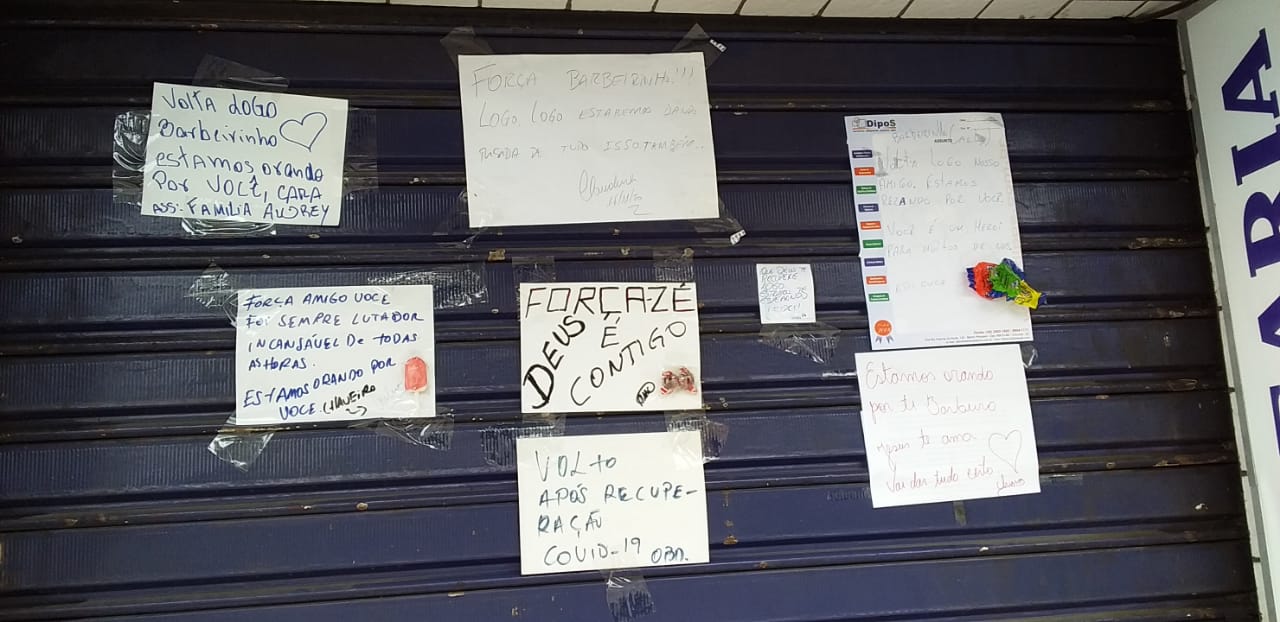 VOLTA LOGO
Barbeirinho
estamos orando
POR VOCE, CARA
ASS: FAMILIA AUDREY
FORÇA BARBEIRINHO!!!
LOGO, LOGO ESTAREMOS DANDO
RISADA DE TUDO ISSO TAMBÉM..
DipoS
ASSUNTO
BARBEIRINHO
VOLTA LOGO NOSSO
AMIGO. ESTAMOS
REZANDO POR VOCÊ
VOCÊ É UM HEROI
PARA MUITOS DE NÓS
FORÇA AMIGO VOCE
FOI SEMPRE LUTADOR
INCANSÁVEL DE TODAS
AS HORAS.
ESTAMOS ORANDO POR
VOCE. CHAVEIRO
FORÇA-ZÉ
DEUS É
CONTIGO
QUE DEUS TE
RECUPERE
LOGO
Estamos orando
por ti Barbeiro
Jesus te ama
Vai dar tudo certo
VOLTO
APÓS RECUPE-
RAÇÃO
COVID-19 OBD.
ARIA